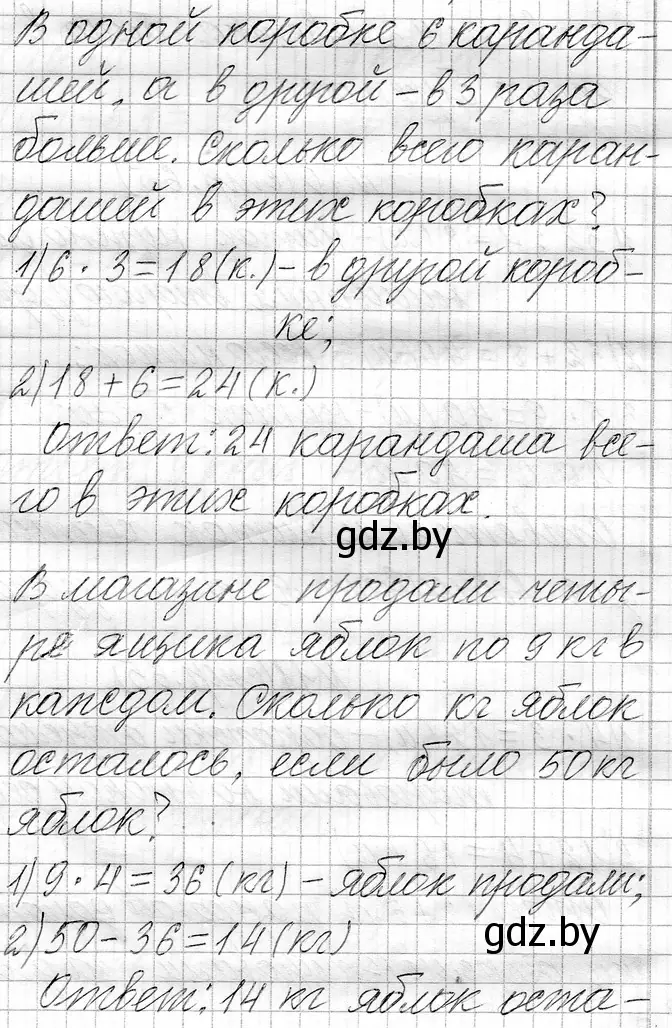 В одной коробке 6 каранда-
шей, а в другой – в 3 раза
больше. Сколько всего каран-
дашей в этих коробках?
1) 6 · 3 = 18 (к.) – в другой короб-
ке;
2) 18 + 6 = 24 (к.)
Ответ: 24 карандаша все-
го в этих коробках.
gdz.by
В магазине продали четы-
ре ящика яблок по 9 кг в
каждом. Сколько кг яблок
осталось, если было 50 кг
яблок?
1) 9 · 4 = 36 (кг) – яблок продали;
2) 50 – 36 = 14 (кг)
gdz.by
Ответ: 14 кг яблок оста-